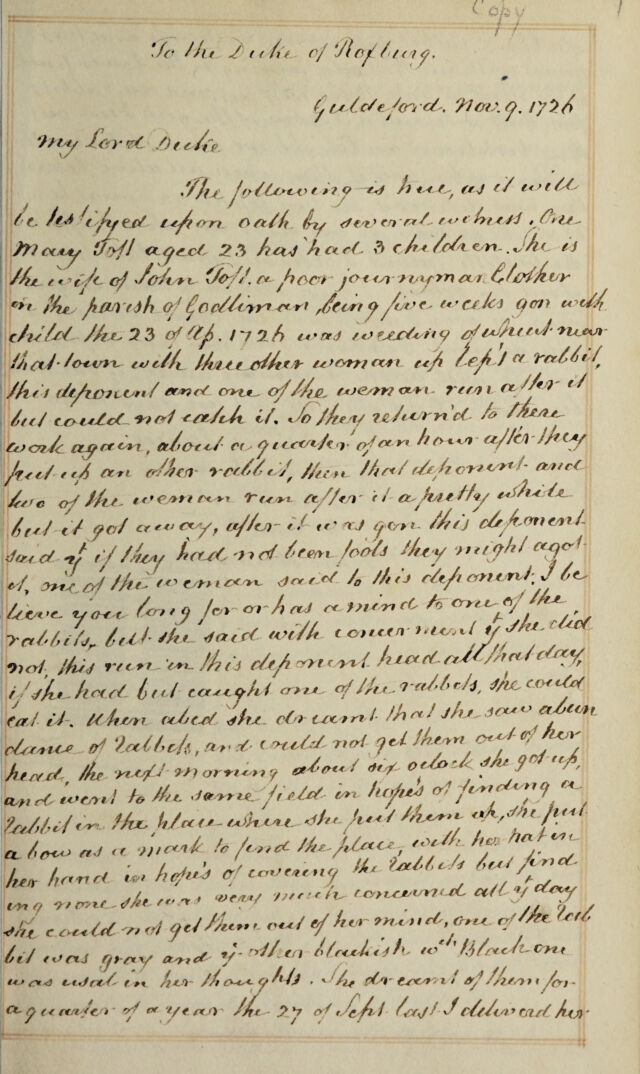 Copy
To the Duke of Roxburg.
Guldeford. Nov. 9. 1726
My Lord Duke
The following is true, as it will
be testifyed upon oath by several witness. One
Mary Toft aged 23 has had 3 children. She is
the wife of John Toft. a poor journyman Clother
in the parish of Godliman, being five weeks gon with
child the 23 of Ap. 1726 was weeding of wheat near
that town with three other woman up lep't a rabbit,
this deponent and one of the weman run after it
but could not catch it. So they return'd to there
work again, about a quarter of an hour after they
put up an other rabbit, then that deponent and
two of the weman run after it a pretty while
but it got away, after it was gon this deponent
said yt if they had not been fools they might agot
it, one of the weman said to this deponent. I be
lieve you long for or has a mind to one of the
rabbits, but she said with concernment yt she did
not, this run in this deponent head all that day,
if she had but caught one of the rabbets, she could
eat it. When abed she dreamt that she saw abun
dance of Rabbets, and could not get them out of her
head, the next morning about six oclock she got up,
and went to the same field in hope's of finding a
Rabbit in the place where she put them up, she put
a bow as a mark to find the place, with her hat in
her hand in hope's of covering the Rabbets but find
ing none she was very much concerned all yt day
she could not get them out of her mind, one of the Rab
bit was gray and ye other blackish wch Black one
was usal in her thoughts. She dreamt of them for
a quarter of a year the 27 of Sept last I deliverd her